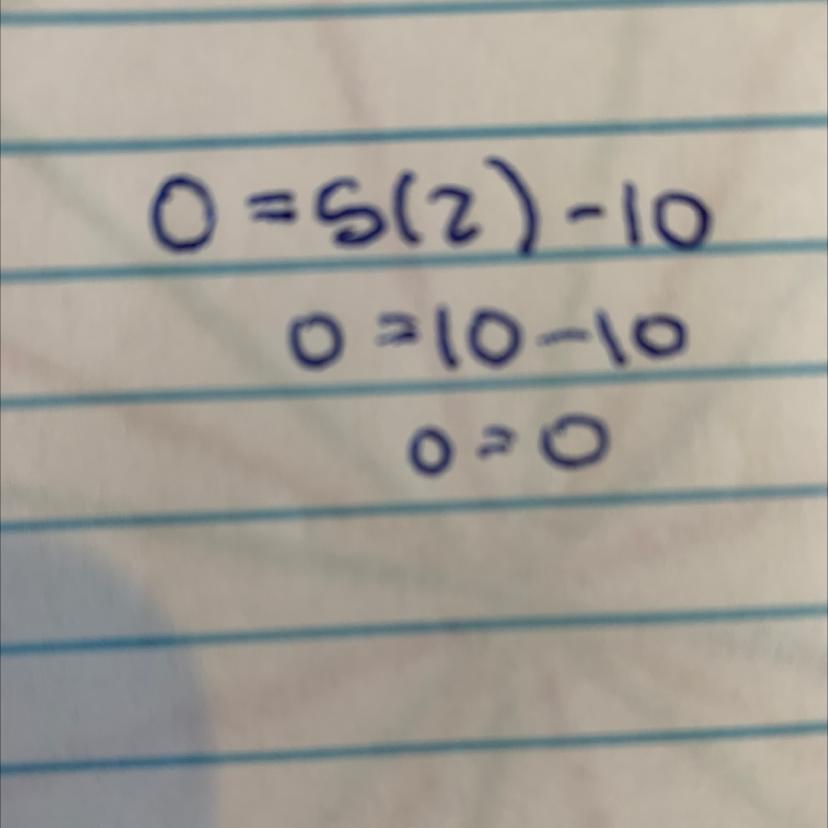 0 = 5(2) - 10
0 = 10 - 10
0 = 0